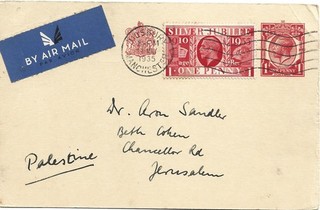 BY AIR MAIL
1935
MANCHESTER
SILVER JUBILEE
1910
1935
ONE PENNY
Dr. Aron Sandler
Beth Cohen
Chancellor Rd
Jerusalem
Palestine